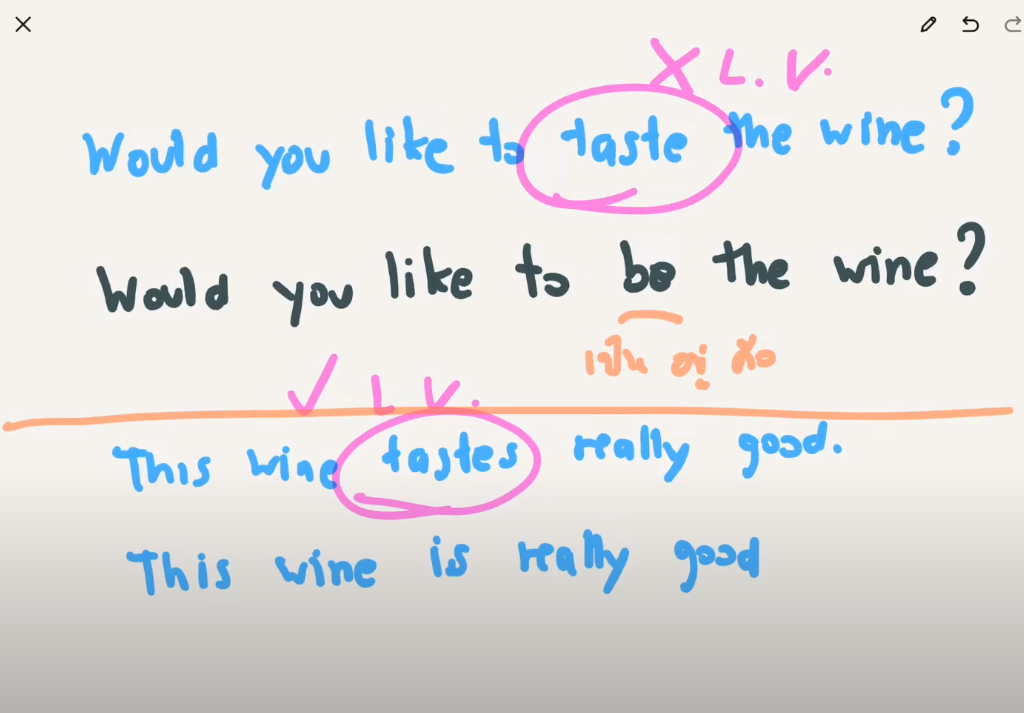 X L. V.
Would you like to taste the wine?
Would you like to be the wine?
เป็น อยู่ คือ
✓ L V.
This wine tastes really good.
This wine is really good